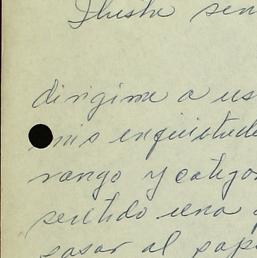 Ilustre sen
dirigirme a us
mis inquietude
rango y catego
sentido una
pasar al pape